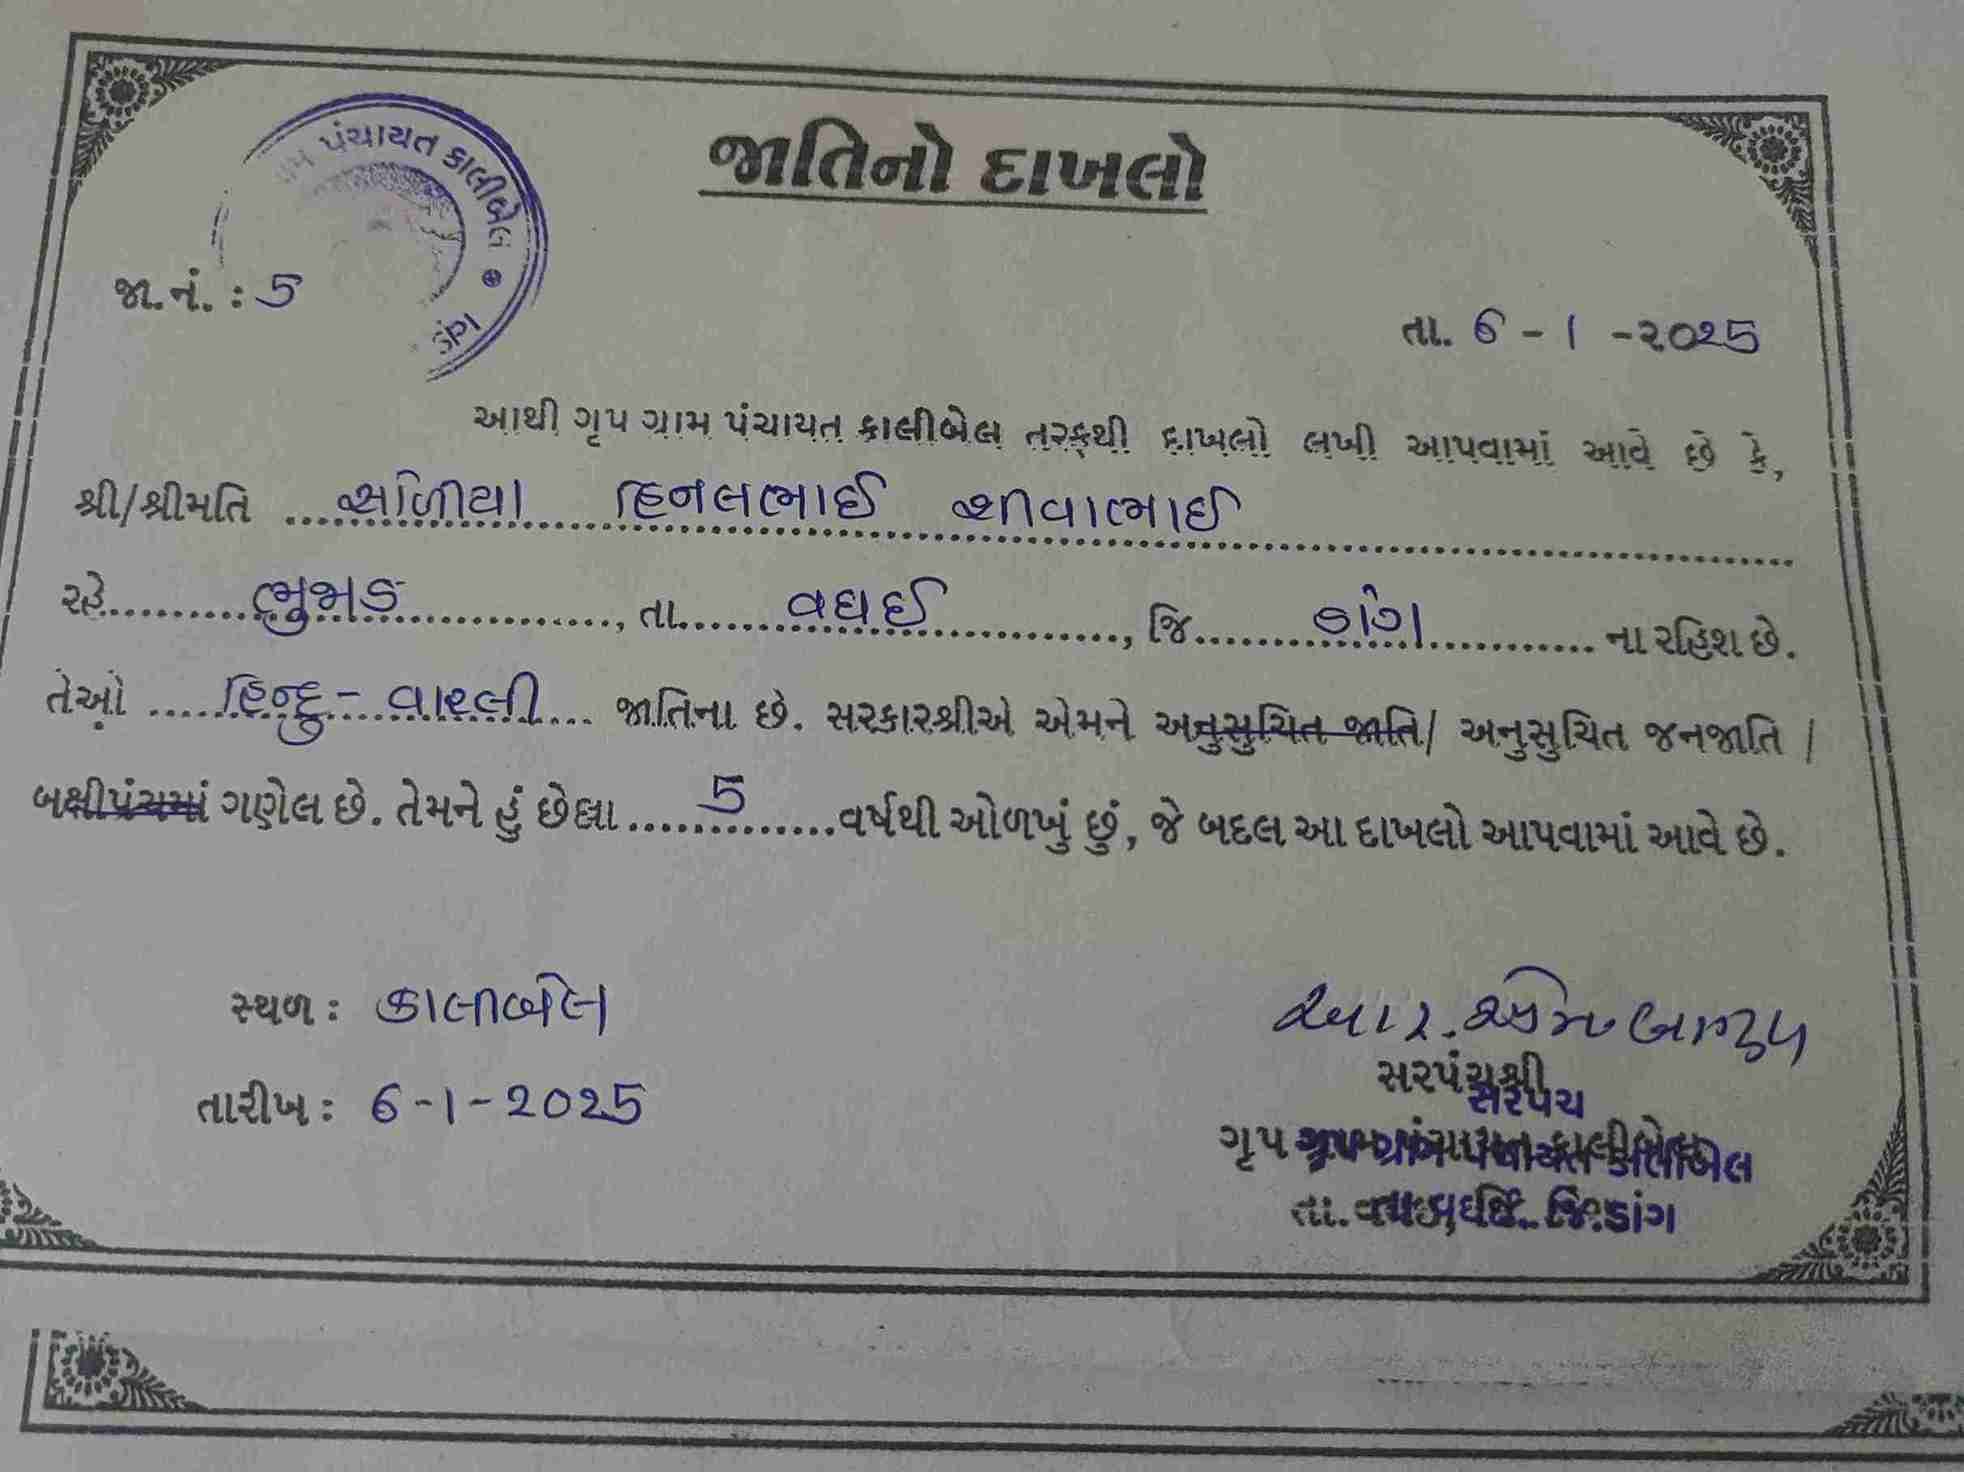 પંચાયત કાલીબેલ
જાતિનો દાખલો
જા.નં. : 5
તા. 6 - 1 - ૨૦૨5
આથી ગૃપ ગ્રામ પંચાયત કાલીબેલ તરફથી દાખલો લખી આપવામાં આવે છે કે,
શ્રી/શ્રીમતિ સોળીયા હિનલભાઈ શીવાભાઈ
રહે. ભુજાડ, તા. વઘઈ, જિ. ડાંગ ના રહિશ છે.
તેઓ હિન્દુ - વારલી જાતિના છે. સરકારશ્રીએ એમને અનુસુચિત જાતિ/ અનુસુચિત જનજાતિ /
બક્ષીપંચમાં ગણેલ છે. તેમને હું છેલ્લા 5 વર્ષથી ઓળખું છું, જે બદલ આ દાખલો આપવામાં આવે છે.
સ્થળ : કાલીબેલ
આર. એમ
તારીખ : 6-1-૨૦૨5
સરપંચશ્રી
સરપંચ
ગૃપ ગ્રામ પંચાયત કાલીબેલ
તા. વઘઈ, જિ. ડાંગ